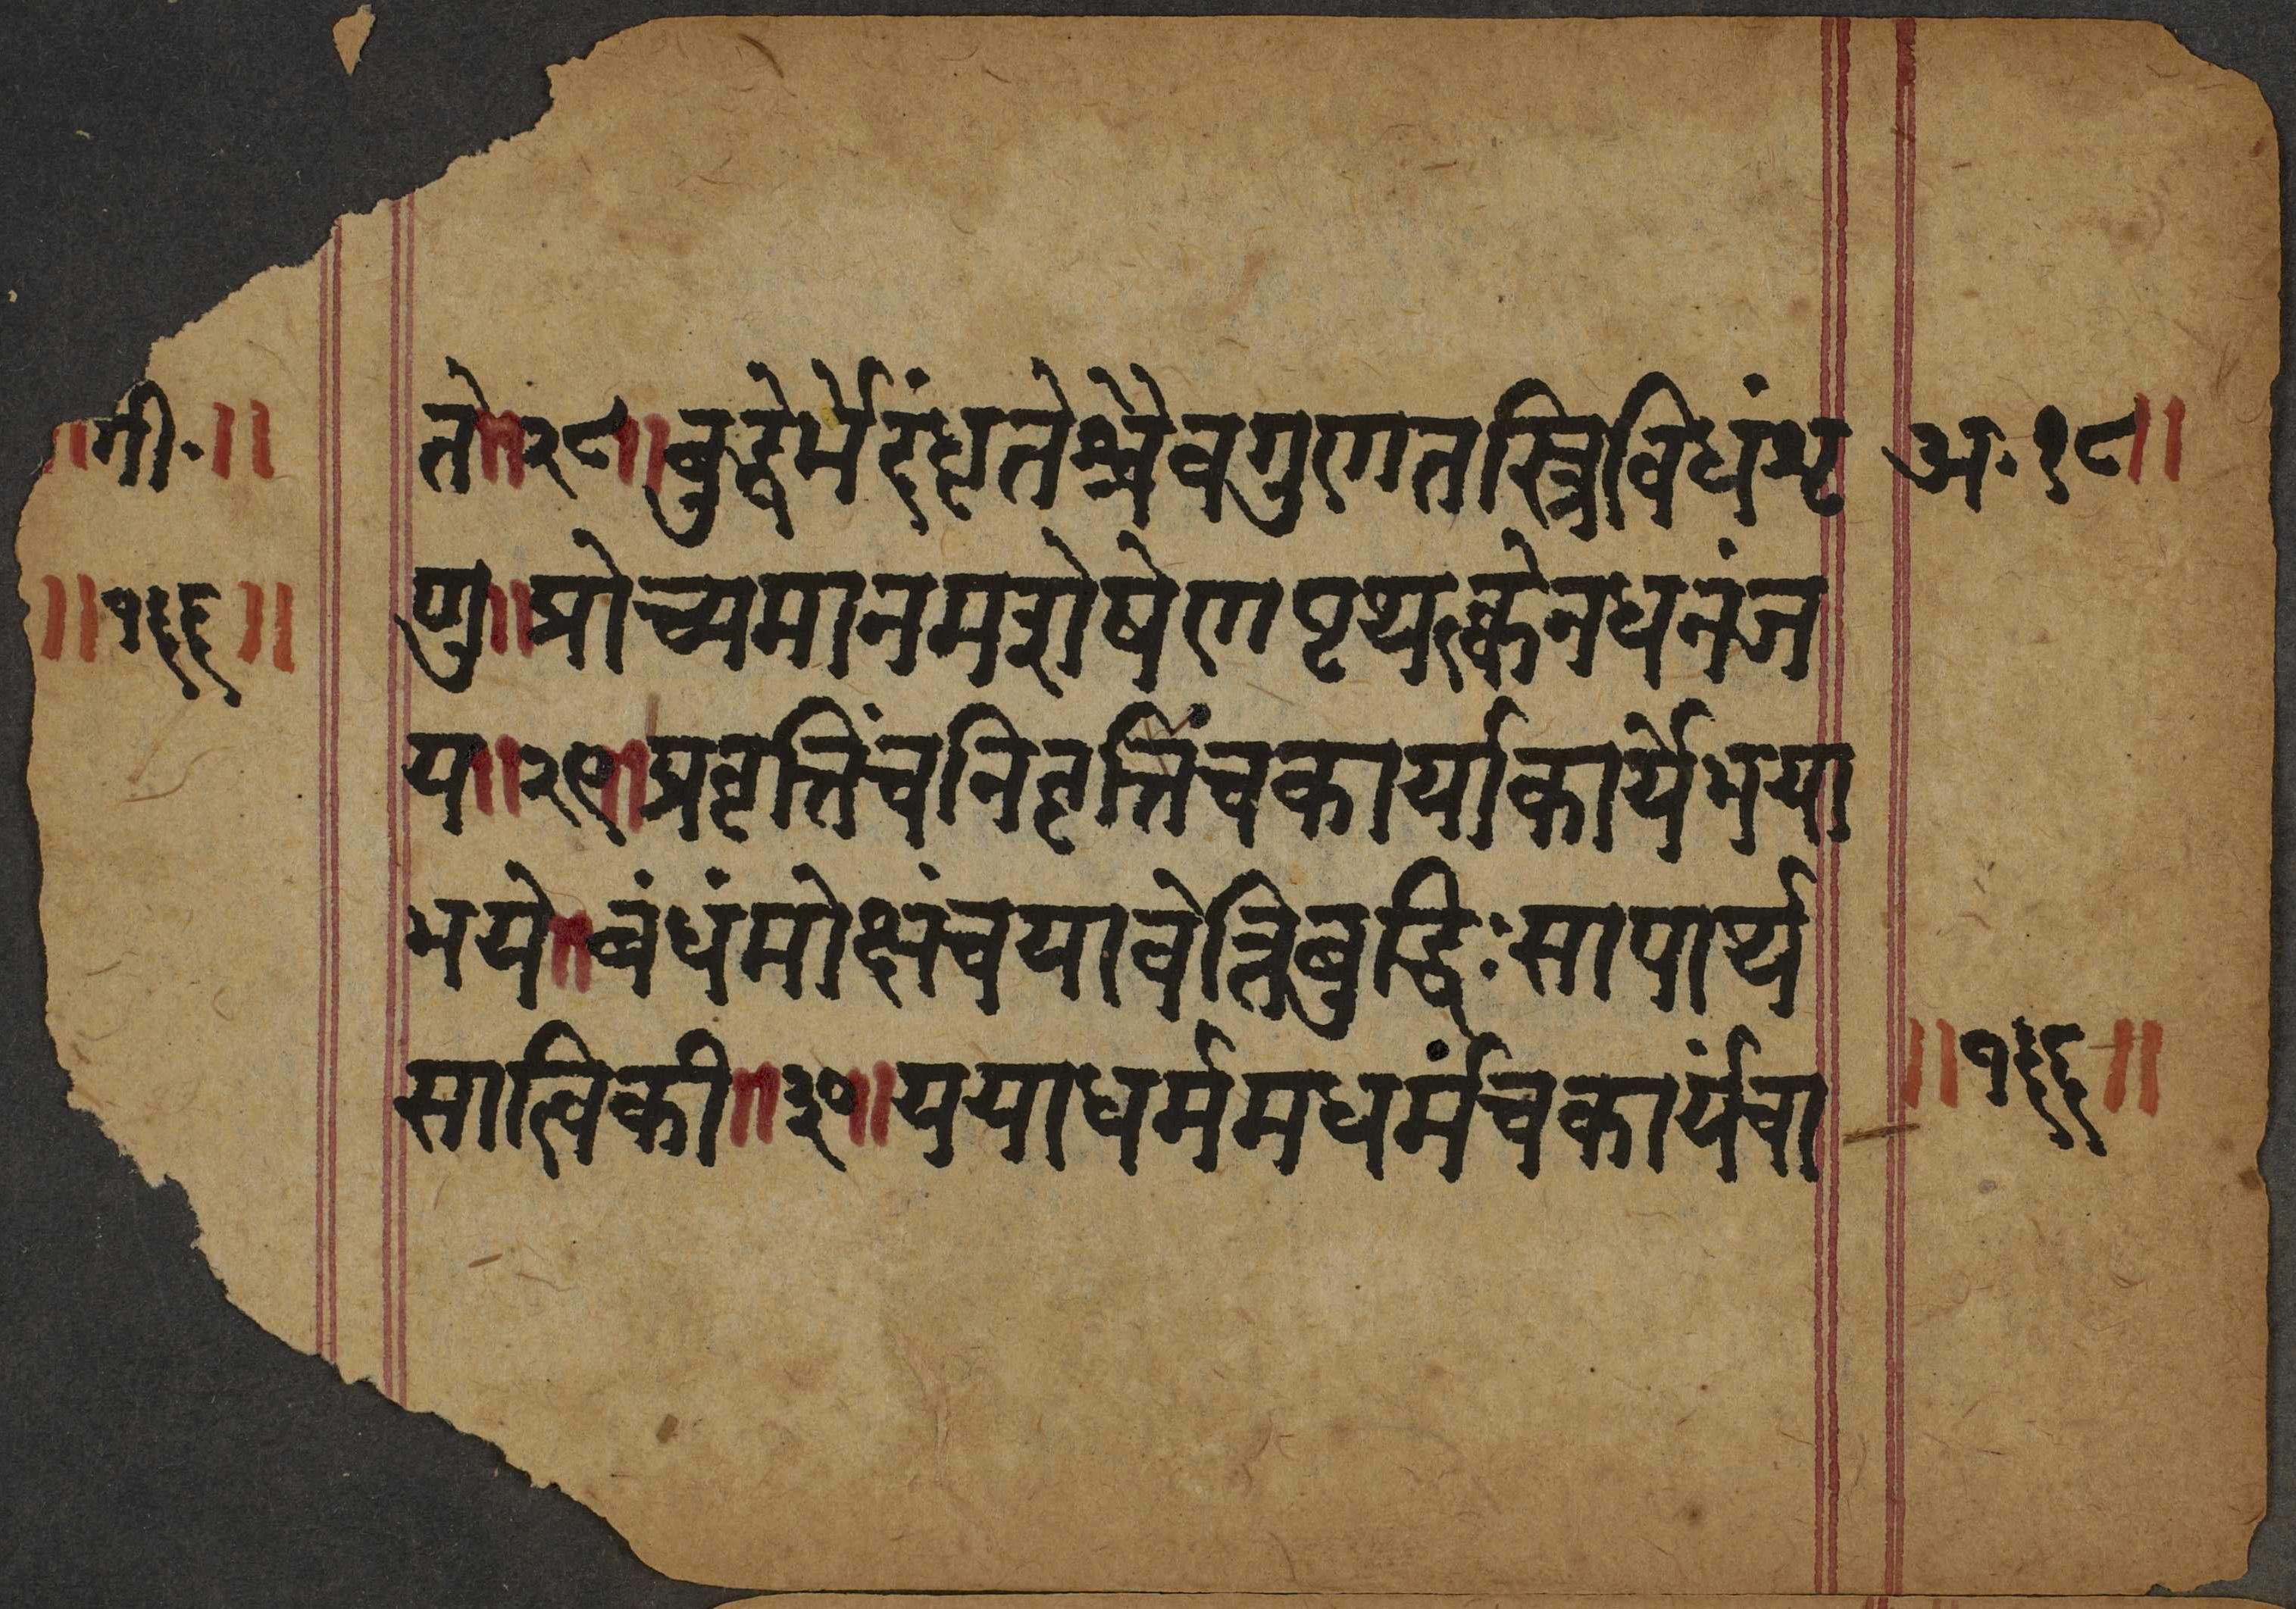 ॥गी॰॥ ते॥२८॥बुद्धेर्भेदंधृतेश्चैवगुणतस्त्रिविधंशृ अ॰१८॥
॥१६६॥ णु॥प्रोच्यमानमशेषेणपृथक्त्केनधनंज
य॥२९॥प्रवृत्तिंचनिवृत्तिंचकार्याकार्येभया
भये॥बंधंमोक्षंचयावेत्तिबुद्धिःसापार्थ
सात्विकी॥३०॥ययाधर्ममधर्मंचकार्यंचा ॥१६६॥